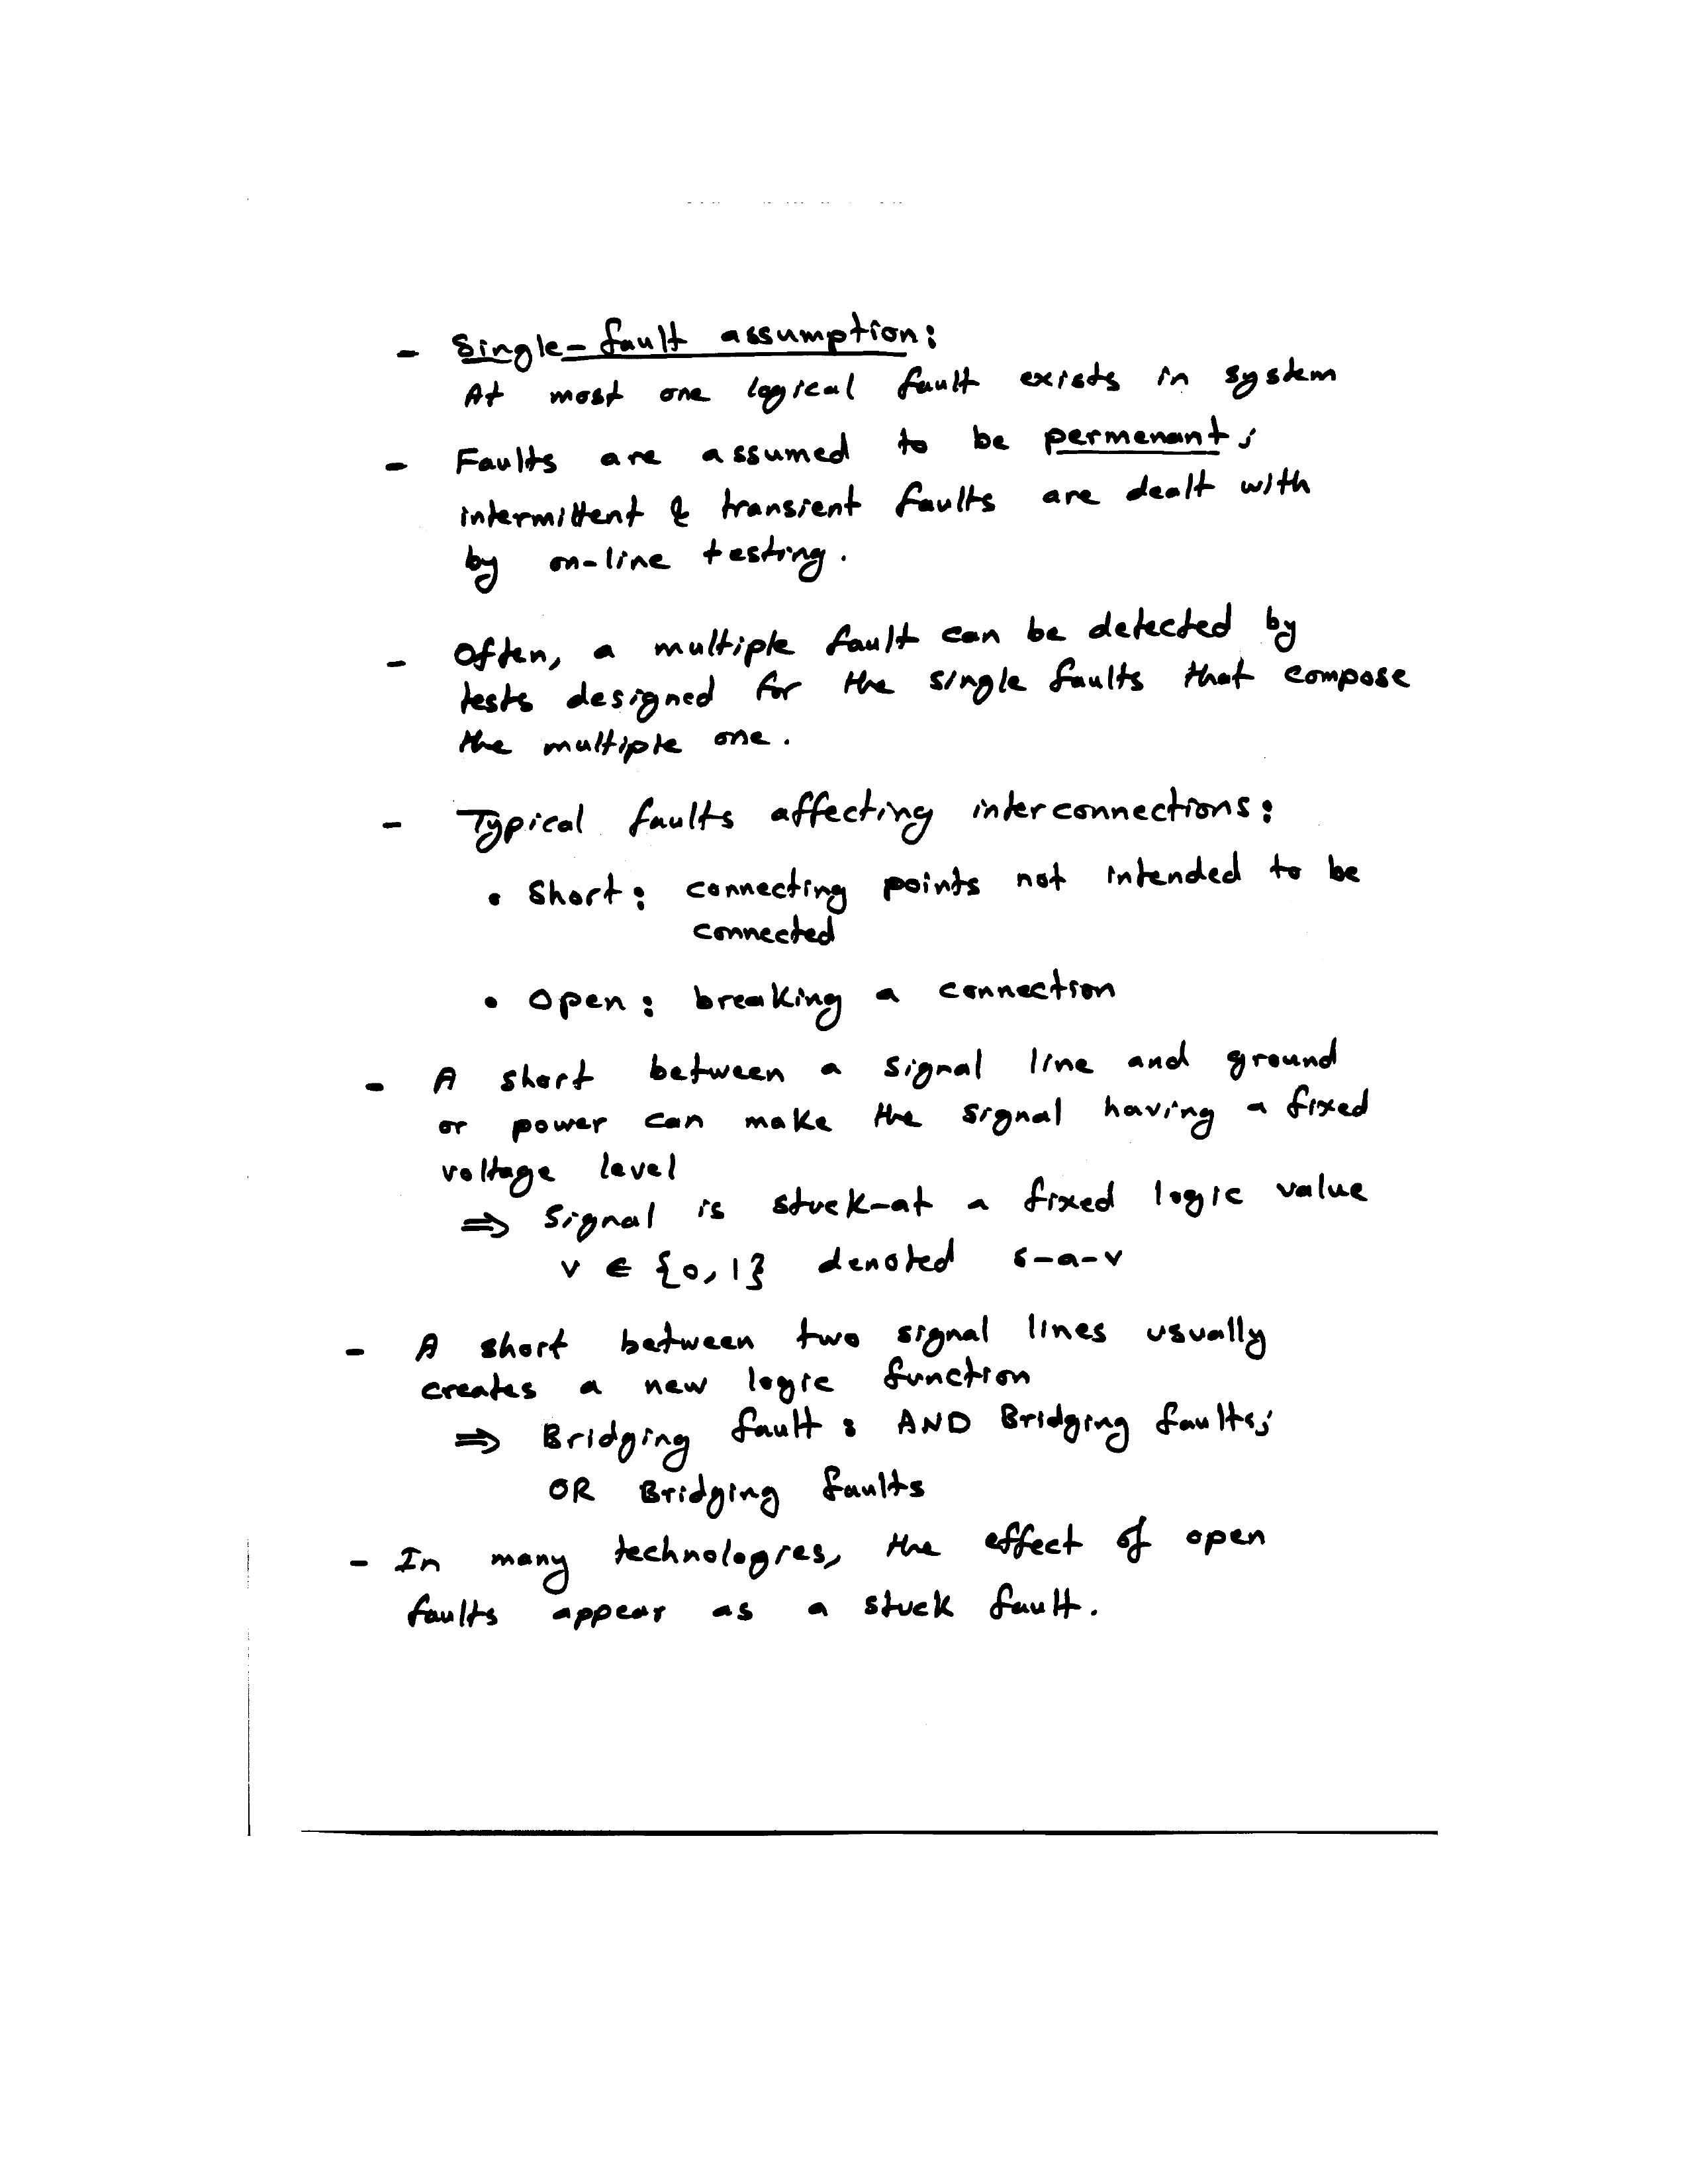 - Single-fault assumption:
At most one logical fault exists in system
- Faults are assumed to be permenant;
intermittent & transient faults are dealt with
by on-line testing.
- Often, a multiple fault can be detected by
tests designed for the single faults that compose
the multiple one.
- Typical faults affecting interconnections:
• Short: connecting points not intended to be
connected
• Open: breaking a connection
- A short between a signal line and ground
or power can make the signal having a fixed
voltage level
⇒ Signal is stuck-at a fixed logic value
v ∈ {0,1} denoted s-a-v
- A short between two signal lines usually
creates a new logic function
⇒ Bridging fault: AND Bridging faults;
OR Bridging faults
- In many technologies, the effect of open
faults appear as a stuck fault.